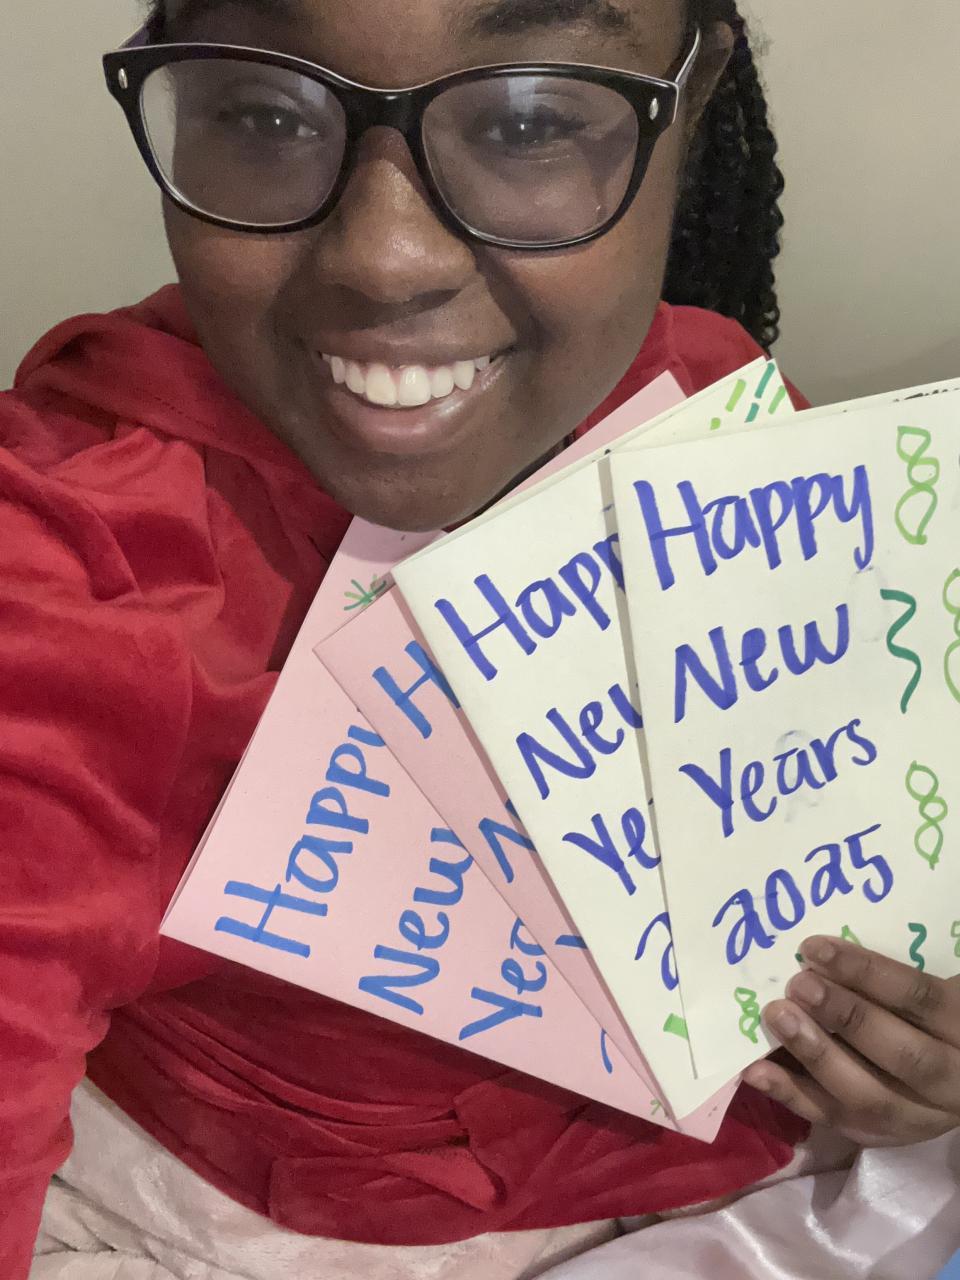 Happy
New
Years
2025
Happ
New
Ye
2
H
Happy
New
Yea